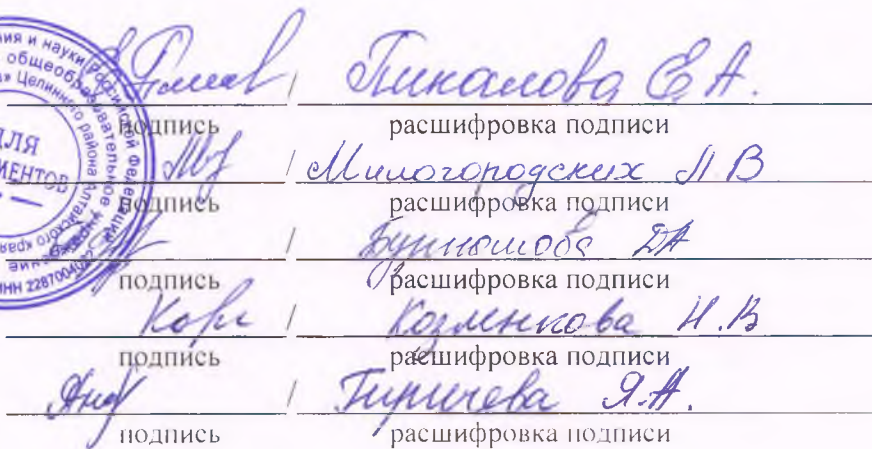 Пикалова Е.А.
подпись расшифровка подписи
/ Милогородских Л В
подпись расшифровка подписи
/ ДА
подпись расшифровка подписи
/ Козленкова Н.В
подпись расшифровка подписи
/ Тиричева Я.А.
подпись расшифровка подписи
общеобразовательное
Целинного района Алтайского края
Российской Федерации
ДЛЯ
ИНН